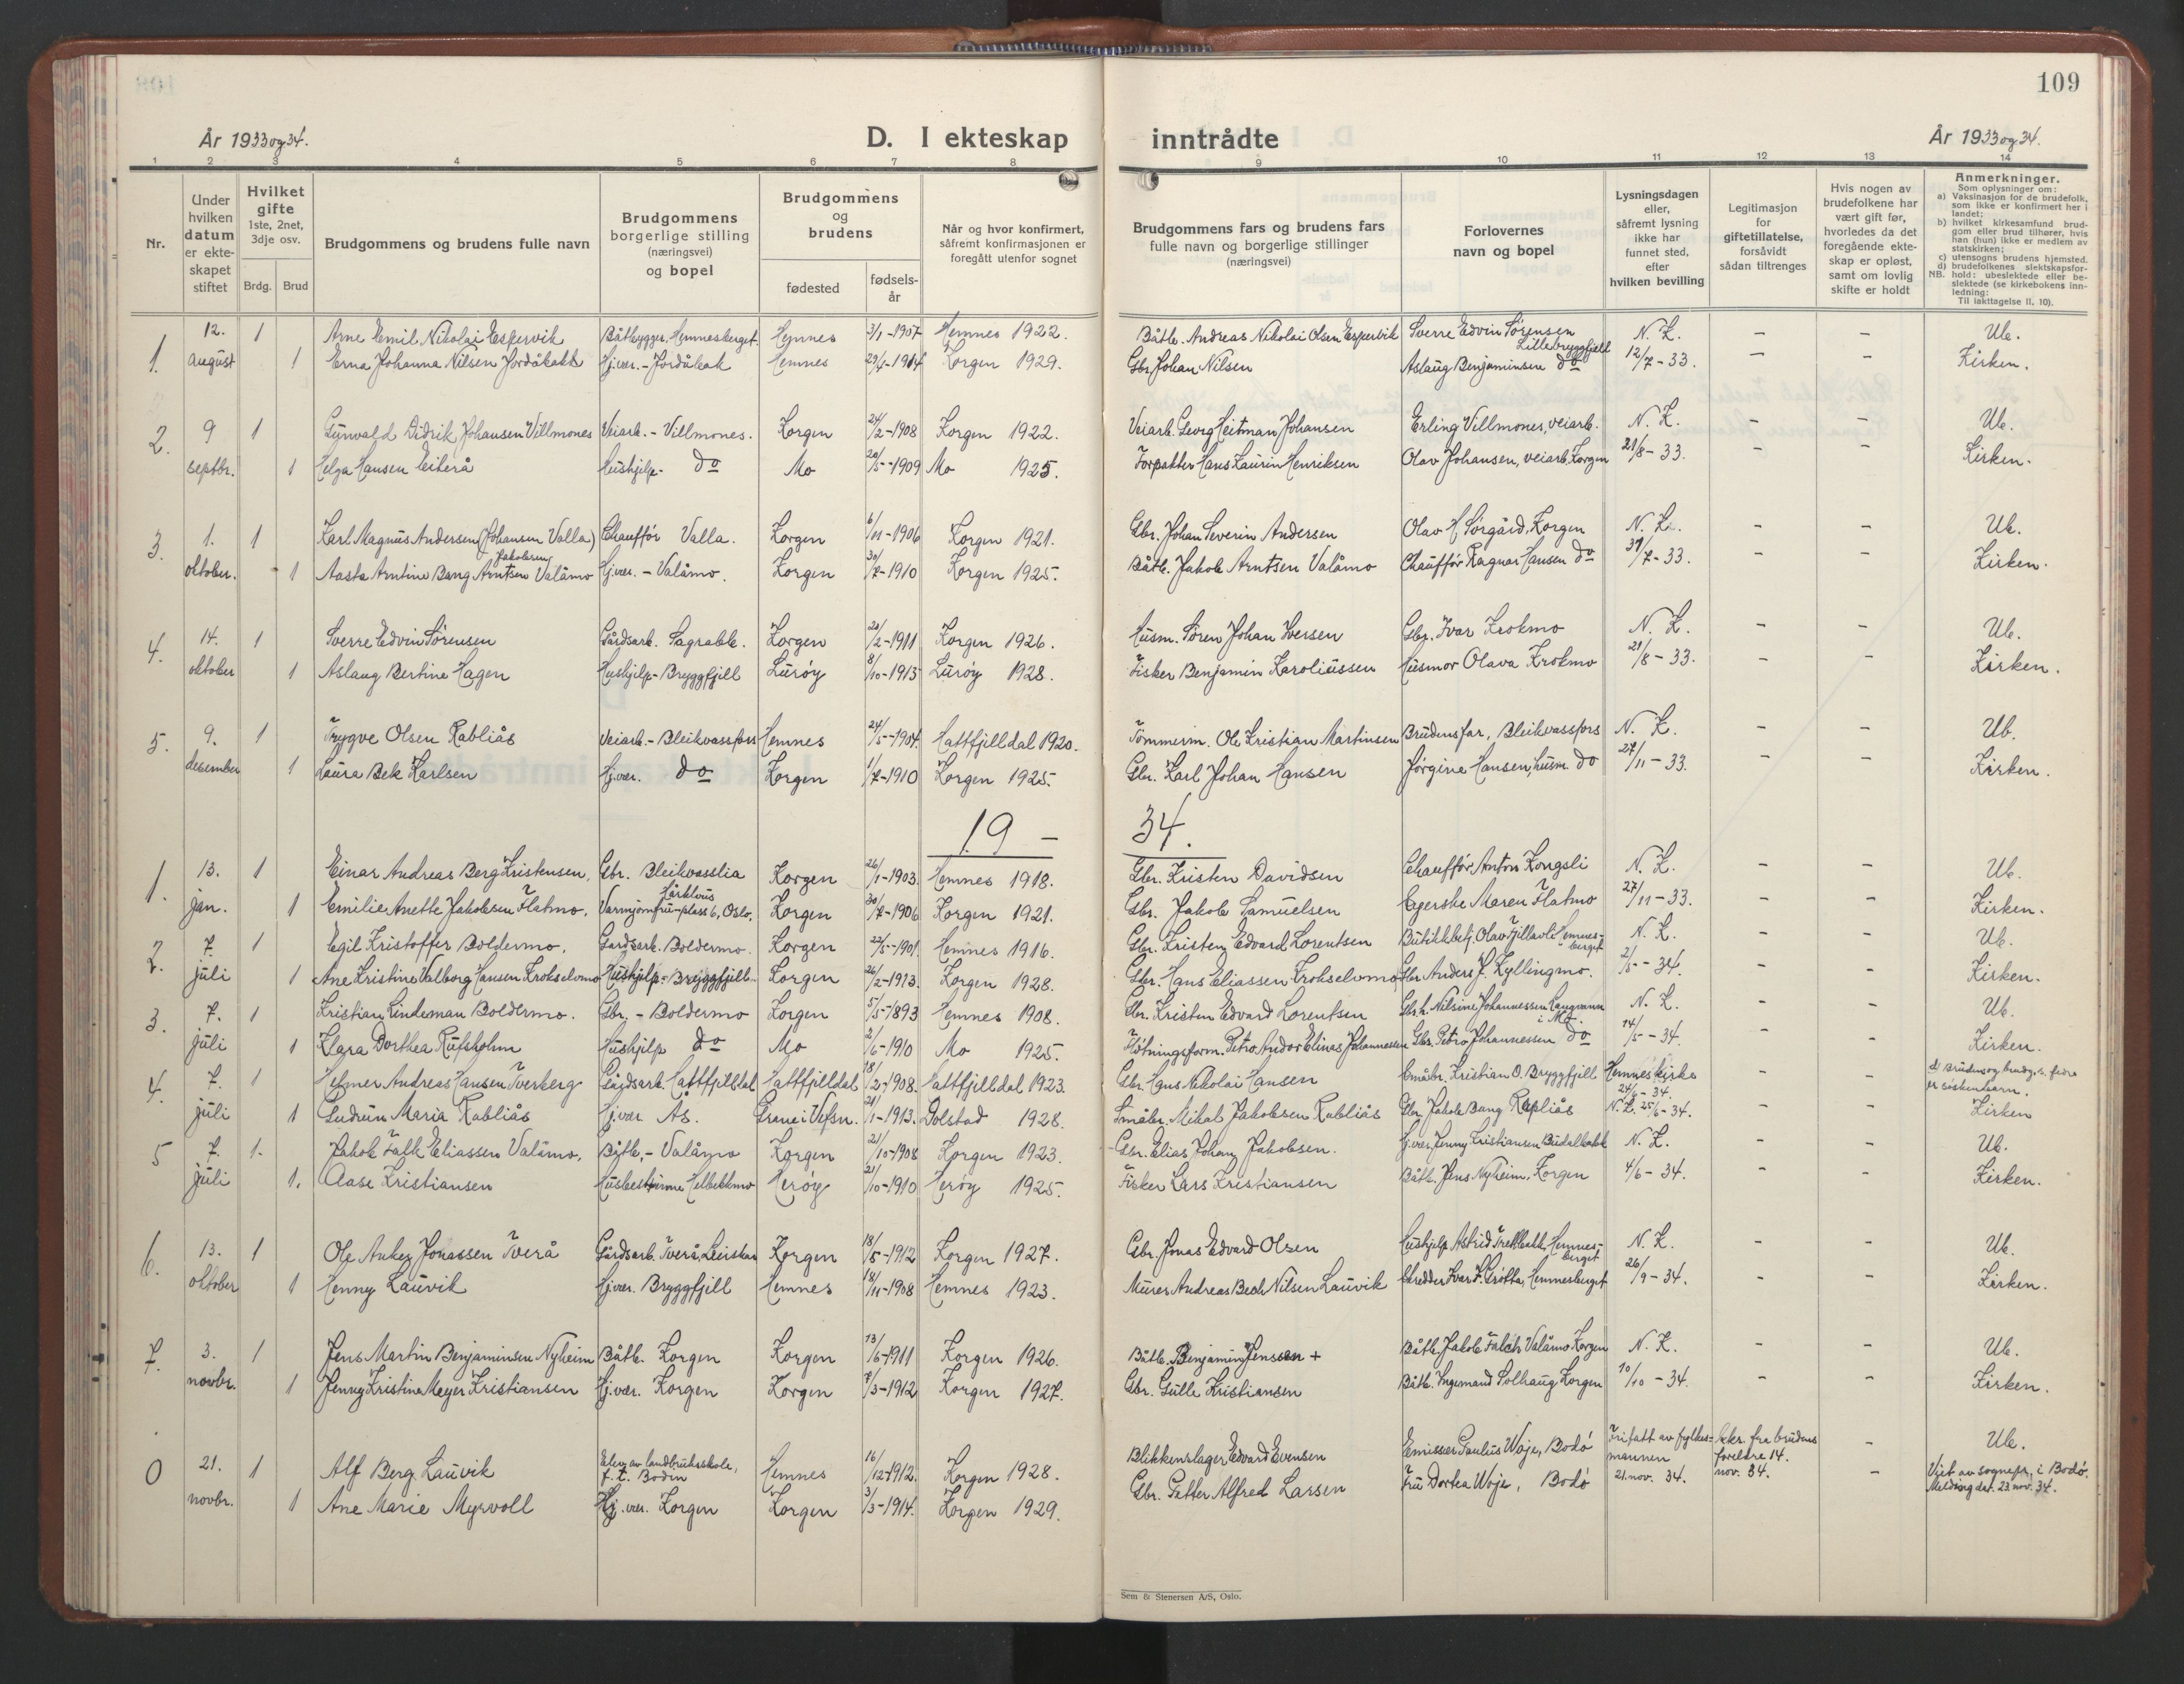 109
År 1933 og 34.
D. I ekteskap inntrådte
År 1933 og 34.
1 2 3 4 5 6 7 8 9 10 11 12 13 14
Nr.
Under hvilken datum er ekteskapet stiftet
Hvilket gifte 1ste, 2net, 3dje osv.
Brdg. Brud
Brudgommens og brudens fulle navn
Brudgommens borgerlige stilling (næringsvei) og bopel
Brudgommens og brudens
fødested
fødselsår
Når og hvor konfirmert, såfremt konfirmasjonen er foregått utenfor sognet
Brudgommens fars og brudens fars fulle navn og borgerlige stillinger (næringsvei)
Forlovernes navn og bopel
Lysningsdagen eller, såfremt lysning ikke har funnet sted, efter hvilken bevilling
Legitimasjon for giftetillatelse, forsåvidt sådan tiltrenges
Hvis nogen av brudefolkene har vært gift før, hvorledes da det foregående ekteskap er opløst, samt om lovlig skifte er holdt
Anmerkninger.
Som oplysninger om:
a) Vaksinasjon for de brudefolk, som ikke er konfirmert her i landet;
b) hvilket kirkesamfund brudgom eller brud tilhører, hvis han (hun) ikke er medlem av statskirken;
c) utensogns brudens hjemsted.
d) brudefolkenes slektskapsforhold: ubeslektede eller beslektede (se kirkebokens innledning:
NB. Til iakttagelse II, 10).
1. 12. 1 Arne Emil Nikolai Espervik Båtbygger, Hemnesberget. Hemnes 3/1-1907 Hemnes 1922. Båtb. Andreas Nikolai Olsen Espervik Sverre Edvin Sørensen Lillebryggfjell N. K. – – Ub.
august 1 Erna Johanna Nilsen Jordåbakk Hj.vær. - Jordåbak Hemnes 29/4-1914 Korgen 1929. Gbr. Johan Nilsen Aslaug Benjaminsen do 12/7-33. – – Kirken.
2. 9 1 Gunvald Didrik Johansen Villmones Veiarb. - Villmones. Korgen 24/2-1908 Korgen 1922. Veiarb. Georg Heitman Johansen Erling Villmones, veiarb. N. K. – – Ub.
septbr. 1 Helga Hansen Leiterå Hushjelp- do Mo 20/5-1909 Mo 1925. Forpakter Hans Laurin Henriksen Olav Johansen, veiarb, Korgen 21/8-33. – – Kirken.
3. 1. 1 Karl Magnus Andersen (Johansen Valla) Chauffør Valla. Korgen 6/11-1906 Korgen 1921. Gbr. Johan Severin Andersen Olav H. Sørgård, Korgen N. K. – – Ub.
oktober. 1 Aasta Arntine Bang Arntsen Jakobsen Valåmo Hj.vær. - Valåmo. Korgen 30/7-1910 Korgen 1925. Båtb. Jakob Arntsen Valåmo Chauffør Ragnar Hansen do 31/7-33. – – Kirken.
4. 14. 1 Sverre Edvin Sørensen Gårdsarb. Sagrabb. Korgen 20/2-1911 Korgen 1926. Husm. Søren Johan Iversen Gbr. Ivar Krokmo N. K. – – Ub.
oktober 1 Aslaug Bertine Hagen Hushjelp- Bryggfjell Lurøy 8/10-1913 Lurøy 1928. Fisker Benjamin Karoliussen Husmor Olava Krokmo 21/8-33. – – Kirken.
5. 9. 1 Trygve Olsen Rabliås Veiarb. - Bleikvassfors Hemnes 24/5-1904. Hattfjelldal 1920. Tømmerm. Ole Kristian Martinsen Brudens far, Bleikvassfors N. K. – – Ub.
desember 1 Laura Bek Karlsen Hj.vær. do Korgen 1/7-1910 Korgen 1925. Gbr. Karl Johan Hansen Jørgine Hansen, husm. do 27/11-33. – – Kirken.
19 - 34.
1. 13. 1 Einar Andreas Berg Kristensen, Gbr. Bleikvasslia Korgen 26/1-1903. Hemnes 1918. Gbr. Kristen Davidsen Chauffør Anton Kongsli N. K. – – Ub.
jan. 1 Emilie Anette Jakobsen Flatmo. Varmjomfru -plass 6, Oslo. Korgen 30/7-1906 Korgen 1921. Gbr. Jakob Samuelsen Maren Flatmo 27/11-33. – – Kirken.
2. 7. 1 Egil Kristoffer Boldermo. Gårdsarb. Boldermo. Korgen 22/5-1901. Hemnes 1916. Gbr. Kristen Edvard Lorentsen Butikkbetj. Olav Fjellavli Hemnesberget N. K. – – Ub.
juli 1 Ane Kristine Valborg Hansen Krokselvmo Hushjelp- Bryggfjell Korgen 26/2-1913. Korgen 1928. Gbr. Hans Eliassen Krokselvmo Gbr. Anders P. Kyllingmo. 2/5-34. – – Kirken.
3. 7. 1 Kristian Lindeman Boldermo. Gbr. - Boldermo Korgen 5/5-1893 Hemnes 1908. Gbr. Kristen Edvard Lorentsen Gbr.h. Nilsine Johannessen Langvann i Mo N. K. – – Ub.
juli 1 Klara Dorthea Rufsholm Hushjelp do Mo 2/6-1910 Mo 1925. Fløtningsform. Petro Andor Elinas Johannessen Gbr. Petro Johannessen do 14/5-34. – – Kirken.
4. 7. 1 Helmer Andreas Hansen Tverberg Gårdsarb. Hattfjelldal Hattfjelldal 18/2-1908. Hattfjelldal 1923. Gbr. Hans Nikolai Hansen Småbr. Kristian O. Bryggfjell Hemnes kirke 24/6-34. d) Brudens og brudg.s fedre er søskenbarn.
juli 1 Gudrun Maria Rabliås Hj.vær. Ås. Grane i Vefsn. 21/1-1913. Dolstad 1928. Småbr. Mikal Jakobsen Rabliås Gbr. Jakob Bang Rapliås N. K. 25/6-34. – – Kirken
5 7. 1. Jakob Falk Eliassen Valåmo. Båtb. - Valåmo Korgen 21/10-1908 Korgen 1923. Gbr. Elias Johan Jakobsen. Hj.vær. Jenny Kristiansen N. K. – – Ub.
juli 1. Aase Kristiansen Husbestyrerinne Herøy 21/10-1910 Herøy 1925. Fisker Lars Kristiansen Båtb. Jens Nyheim, Korgen 4/6-34. – – Kirken.
6. 13. 1 Ole Anker Jonassen Tverå Gårdsarb. Tverå, Leirskar Korgen 18/5-1912 Korgen 1927. Gbr. Jonas Edvard Olsen Hushjelp Astrid Trettbakk, Hemnesberget N. K. – – Ub.
oktober 1 Henny Lauvik Hj.vær. Bryggfjell Hemnes 18/11-1908 Hemnes 1923. Murer Andreas Bech Nilsen Lauvik Skredder Ivar F. Grøtta, Hemnesberget 26/9-34. – – Kirken.
7. 3. 1 Jens Martin Benjaminsen Nyheim Båtb. Korgen Korgen 13/6-1911 Korgen 1926. Båtb. Benjamin Jenssen + Båtb. Jakob Falch Valåmo Korgen N. K. – – Ub.
novbr. 1 Jenny Kristine Meyer Kristiansen Hj.vær. Korgen Korgen 7/3-1912 Korgen 1927. Gbr. Gulle Kristiansen Båtb. Ingemand Solhaug Korgen 10/10-34. – – Kirken.
0 21. 1 Alf Berg Lauvik Elev av landbruksskole, f. t. Bodin Hemnes 16/12-1912. Korgen 1928. Blikkenslager Edvard Evensen Emissær Paulus Woje, Bodø Fritatt av fylkesmannen Erkr. fra brudens foreldre 14. nov. 34. – Ub.
novbr. 1 Ane Marie Myrvoll Hj.vær. Korgen Korgen 3/3-1914. Korgen 1929. Gbr. Petter Alfred Larsen Fru Dortea Woje, Bodø 21. nov. 34. – Viet av sognepr. i Bodø. Melding dat. 23. nov. 34.
Sem & Stenersen A/S, Oslo.